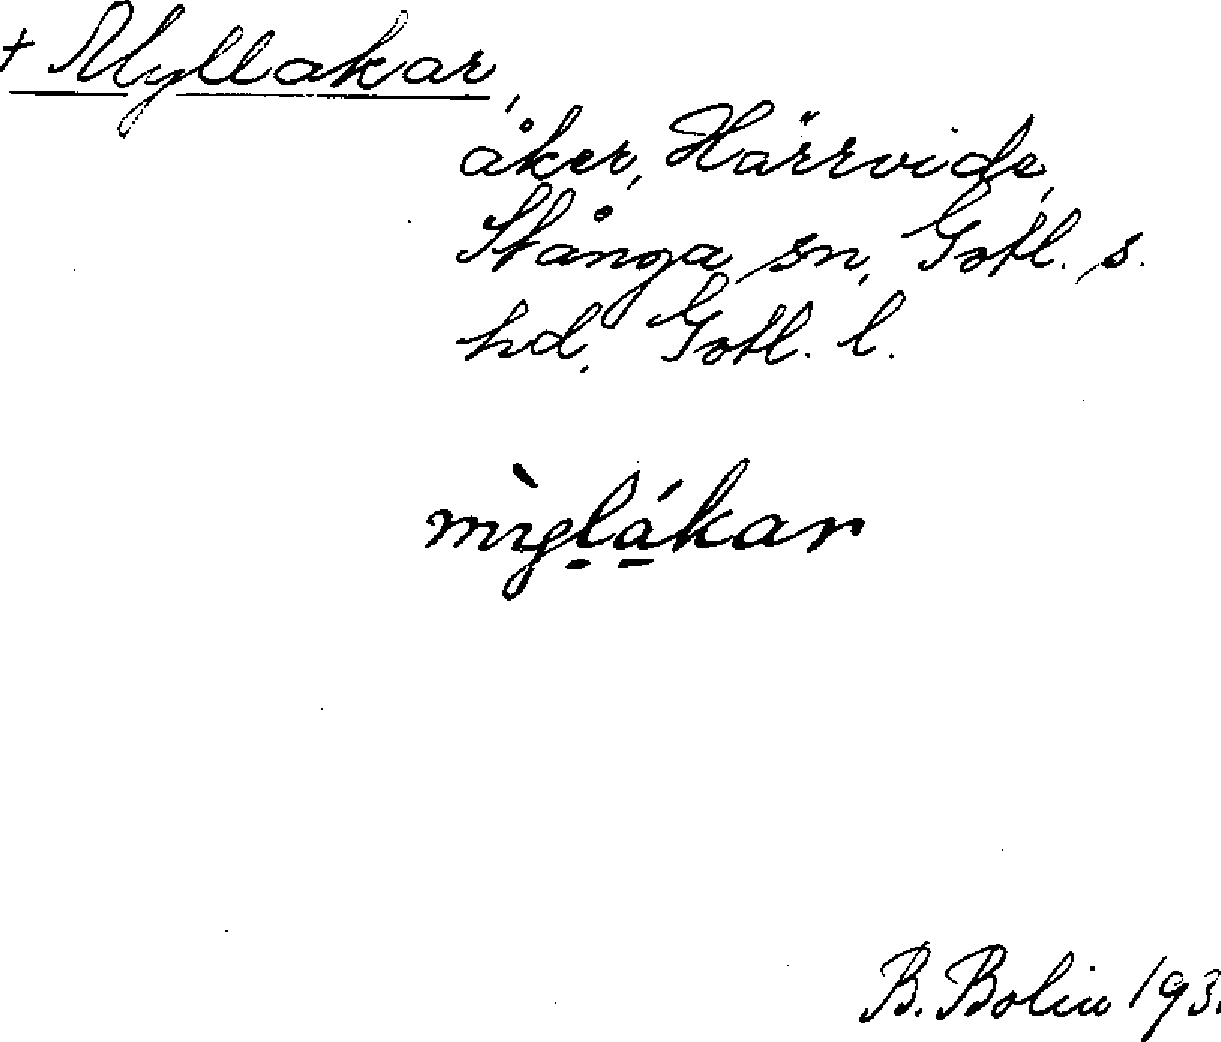 + Myllakar,
åker, Härrvide,
Stånga sn, Gotl. s.
hd, Gotl. l.
B. Bolin 193